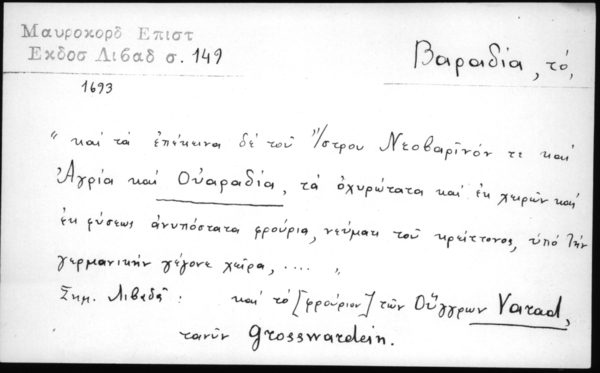 Μαυροκορδ Επιστ
Εκδοσ Λιβαδ σ. 149
Βαραδία, τό,
1693
" καί τά ἐπέκεινα δέ τοῦ Ἴστρου Νεοβαρῖνόν τε καί
Ἀγρία καί Οὐαραδία, τά ὀχυρώτατα καί ἐκ χειρῶν καί
ἐκ φύσεως ἀνυπόστατα φρούρια, νεύματι τοῦ κρείττονος, ὑπό τήν
γερμανικήν γέγονε χεῖρα, .... "
Σημ. Λιβαδᾶ : καί τό [φρούριον] τῶν Οὔγγρων Varad,
τανῦν Grosswardein.